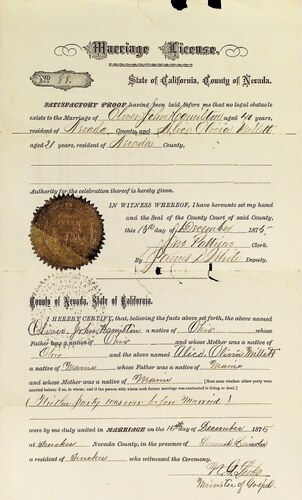 Marriage License.
No. 88. State of California, County of Nevada.
SATISFACTORY PROOF having been laid before me that no legal obstacle
exists to the Marriage of Oliver John Hamilton aged 40 years,
resident of Nevada County, and Alice Olivia Willett
aged 21 years, resident of Nevada County.
Authority for the celebration thereof is hereby given.
IN WITNESS WHEREOF, I have hereunto set my hand
and the Seal of the County Court of said County,
this 13th day of December 1875
Clerk.
By James Deputy.
County of Nevada, State of California.
I HEREBY CERTIFY, that, believing the facts above set forth, the above named
Oliver John Hamilton a native of Ohio whose
Father was a native of Ohio and whose Mother was a native of
Ohio and the above named Alice Olivia Willett
a native of Maine whose Father was a native of Maine
and whose Mother was a native of Maine [Here state whether either party were
married before, if so, where; and if the person with whom such former marriage was contracted is living or dead.]
(Neither party was ever before Married)
were by me duly united in MARRIAGE on the 15th day of December 1875
at Truckee Nevada County, in the presence of
a resident of Truckee who witnessed the Ceremony.
Minister of Gospel